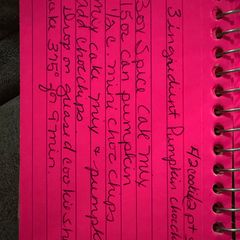 4/2 cook/2 pt s
3 ingridient Pumpkin choc ch
Box Spice Cake mix
15oz can pumpkin
1/2 c mini choc chips
mix cake mix & pumpk
add choc chips
Drop on greased cookie sh
ake 375° for 9 min